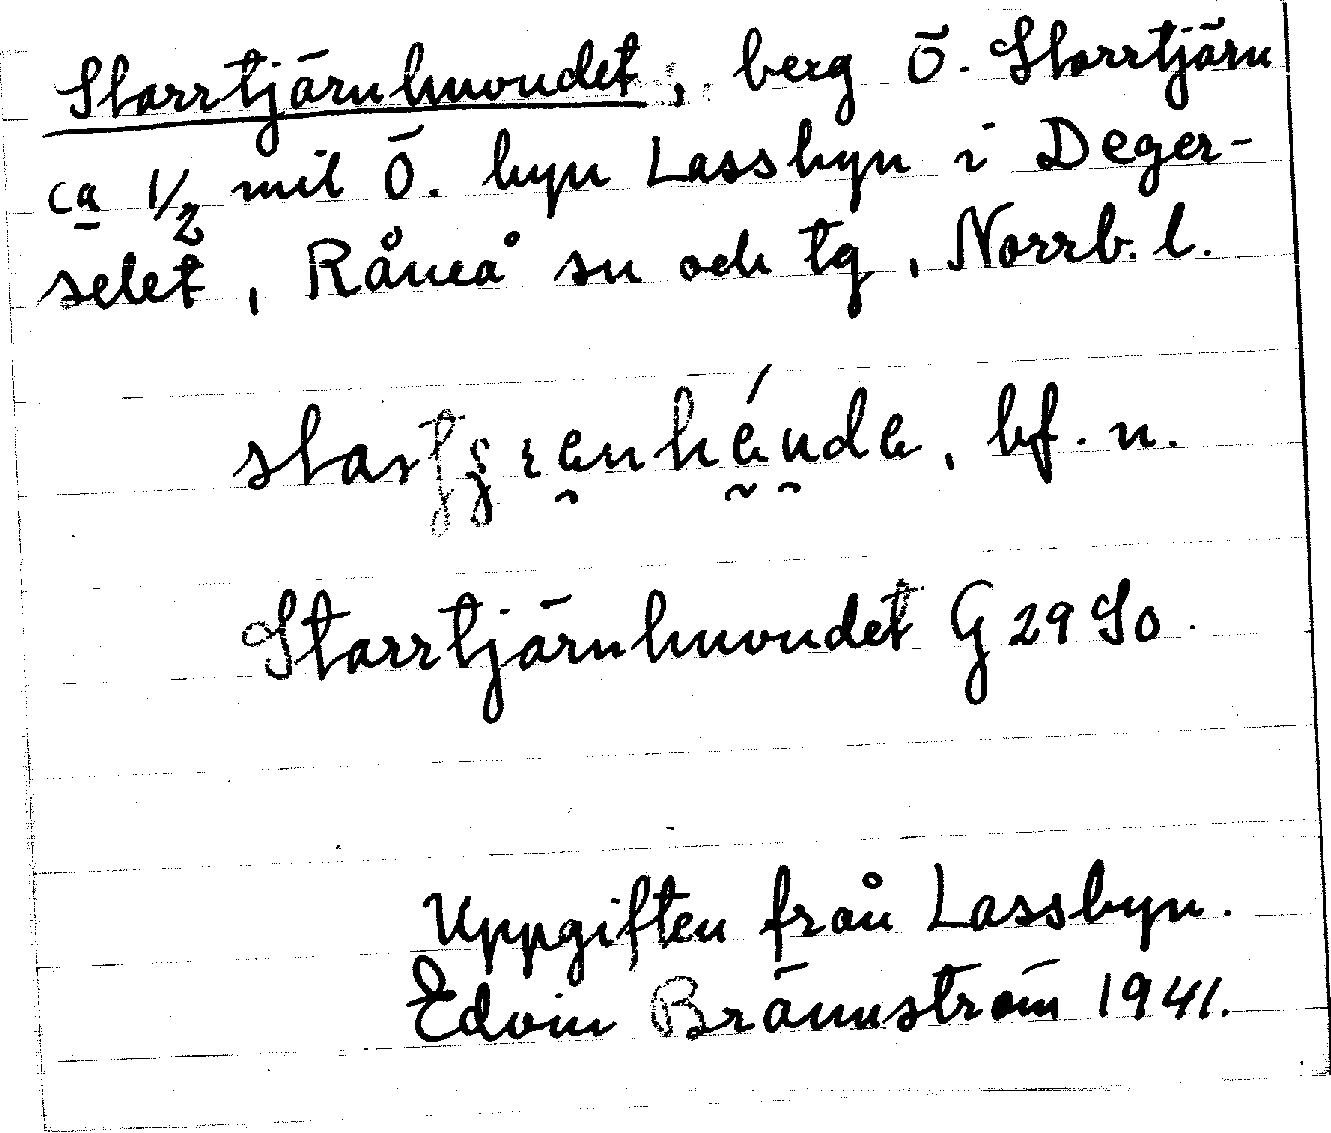 Starrtjärnhuvudet, berg Ö. Starrtjärn
ca 1/2 mil Ö. byn Lassbyn i Deger-
selet, Råneå sn och tg, Norrb. l.
bf. n.
Starrtjärnhuvudet G 29 So
Uppgiften från Lassbyn.
Edvin Brännström 1941.